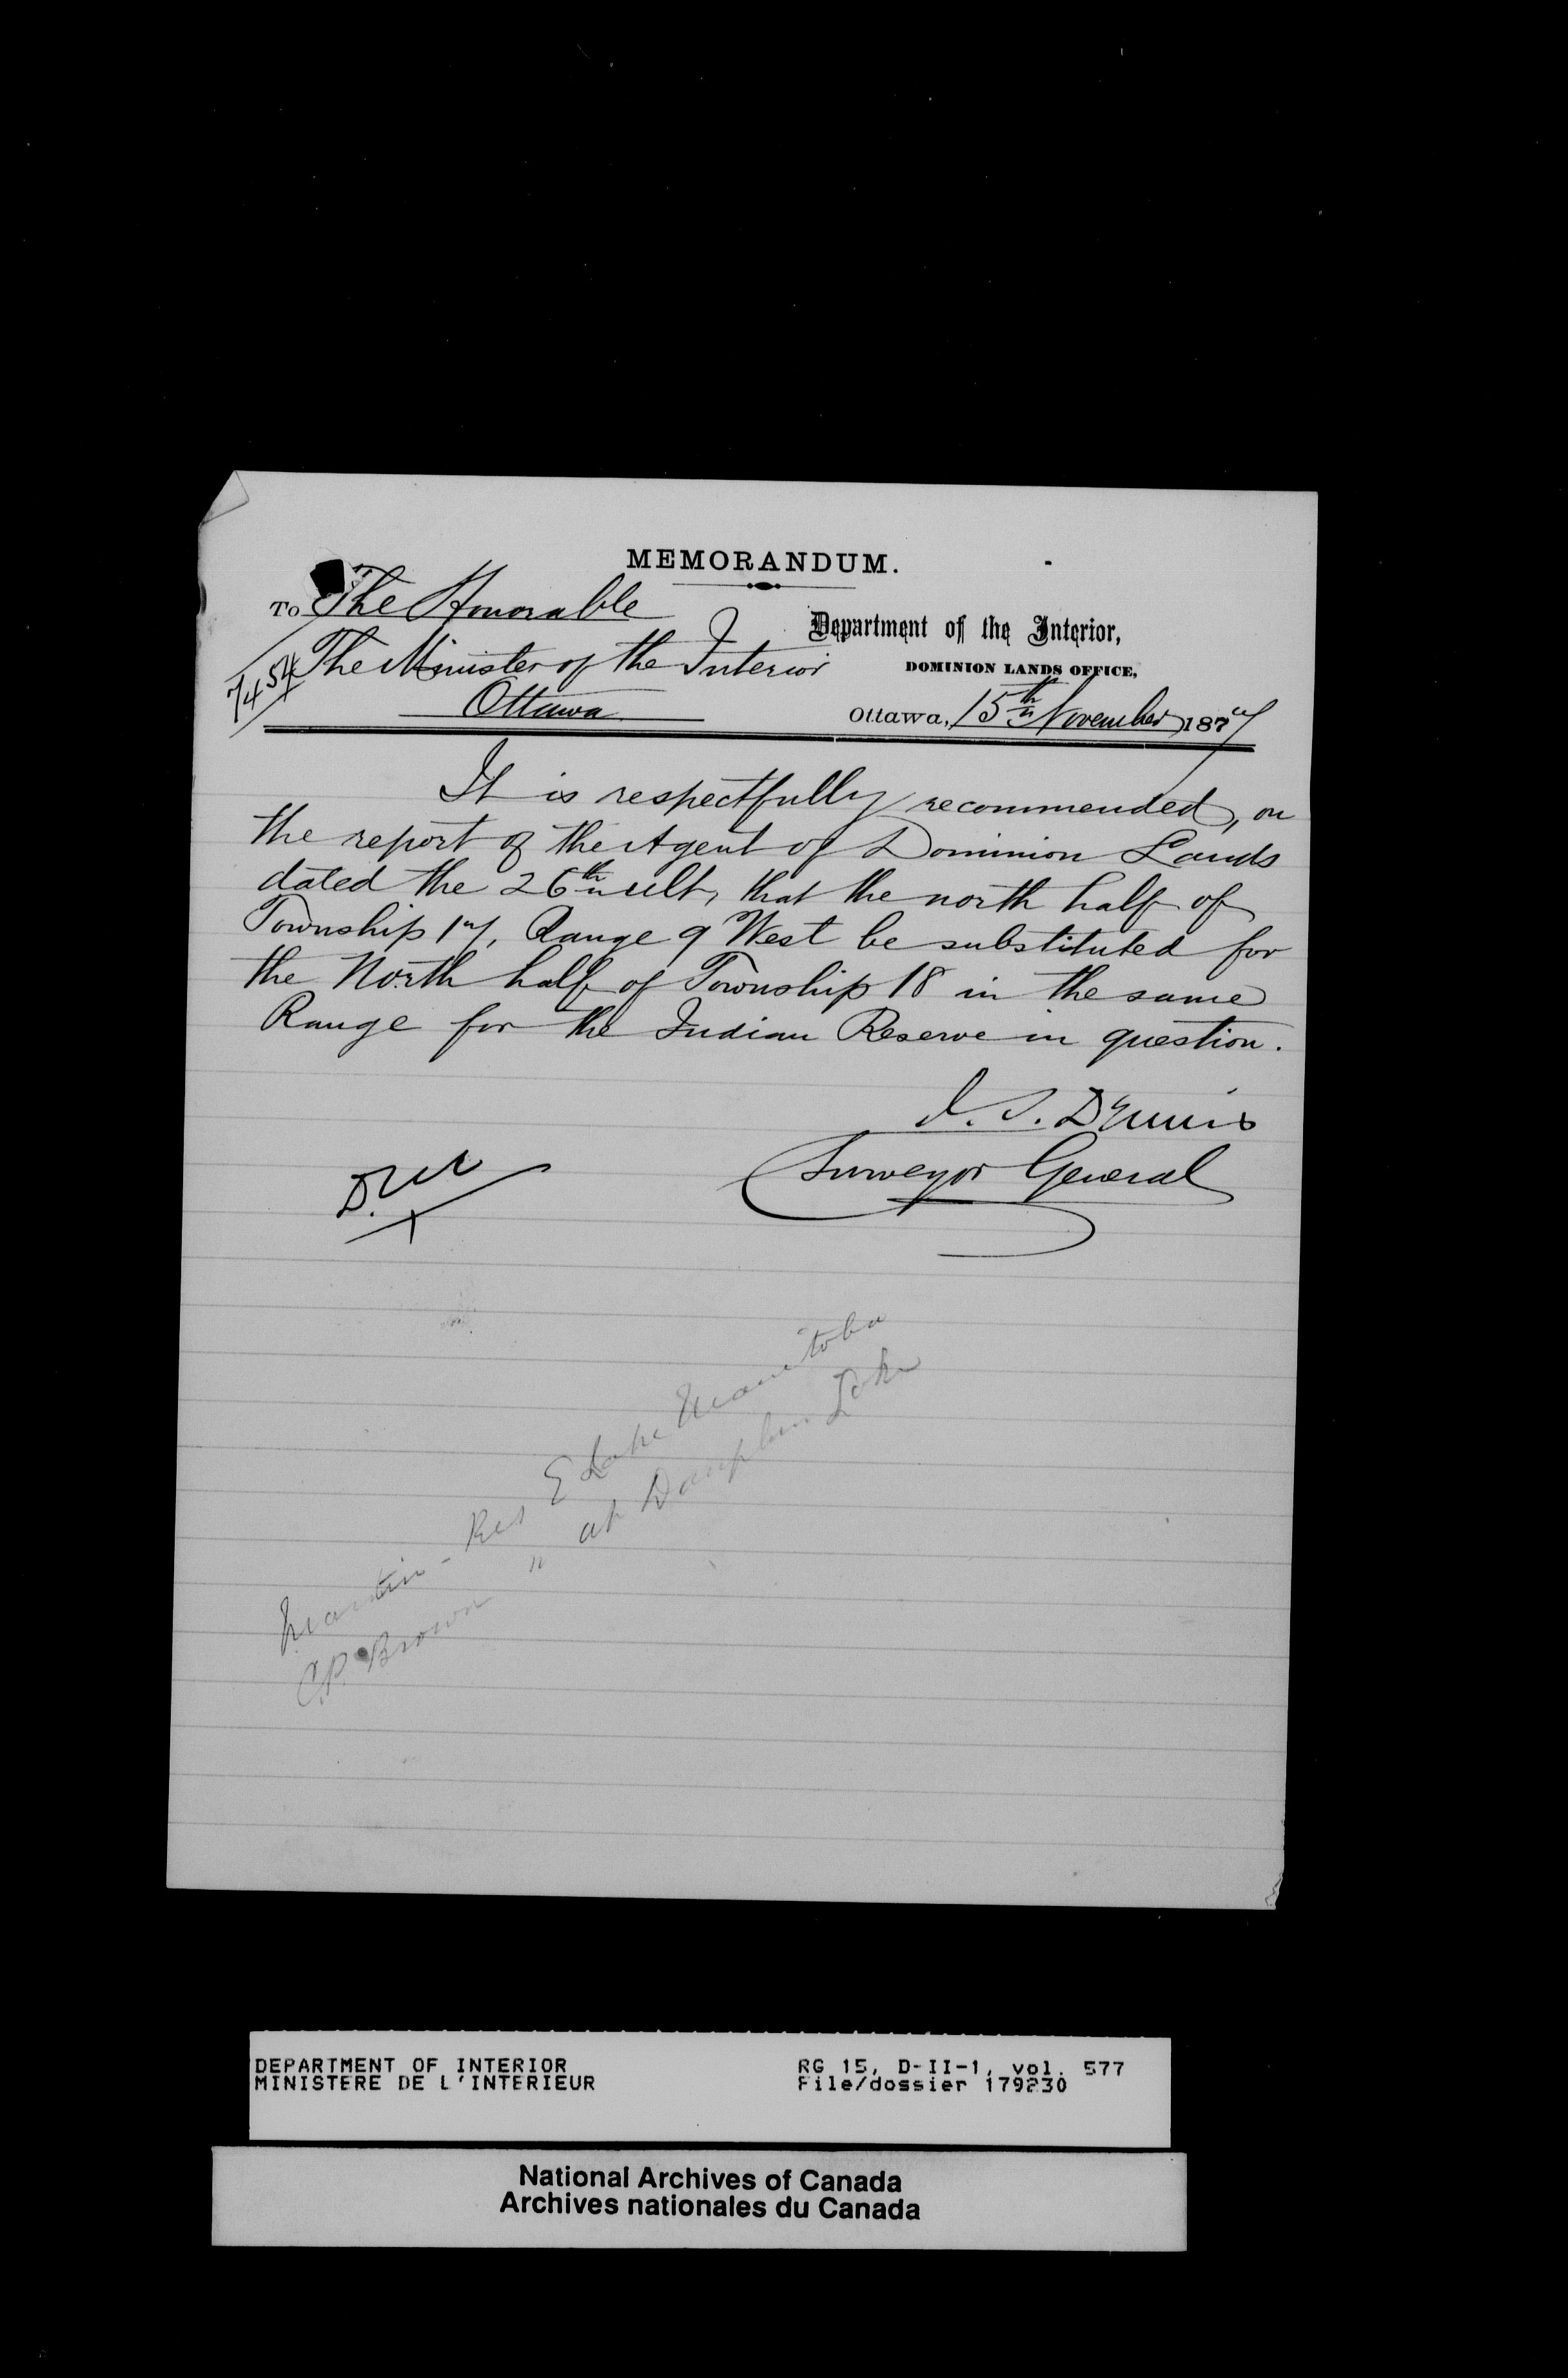 MEMORANDUM.
To The Honorable
The Minister of the Interior
Ottawa
7454
Department of the Interior,
DOMINION LANDS OFFICE,
Ottawa, 15th November 1877
It is respectfully recommended, on
the report of the Agent of Dominion Lands
dated the 26th ult, that the north half of
Township 17, Range 9 West be substituted for
the North half of Township 18 in the same
Range for the Indian Reserve in question.
J. S. Dennis
Surveyor General
Martin - Res E Lake Manitoba
C.P. Brown " at Dauphin Lake
DEPARTMENT OF INTERIOR
MINISTERE DE L'INTERIEUR
RG 15, D-II-1, vol. 577
File/dossier 179230
National Archives of Canada
Archives nationales du Canada